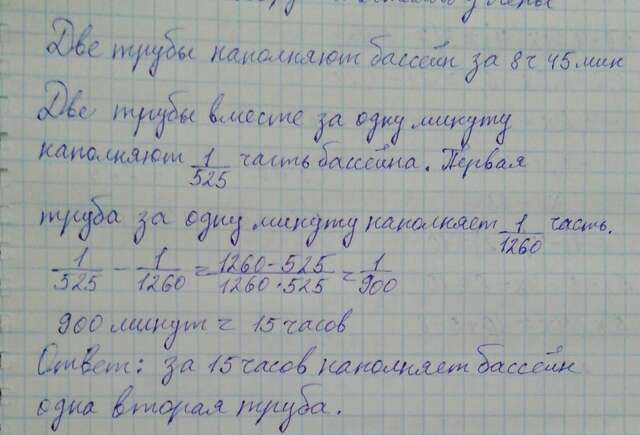 Две трубы наполняют бассейн за 8 ч 45 мин
Две трубы вместе за одну минуту
наполняют 1/525 часть бассейна. Первая
труба за одну минуту наполняет 1/1260 часть.
1/525 - 1/1260 = (1260-525)/(1260·525) = 1/900
900 минут = 15 часов
Ответ: за 15 часов наполняет бассейн
одна вторая труба.